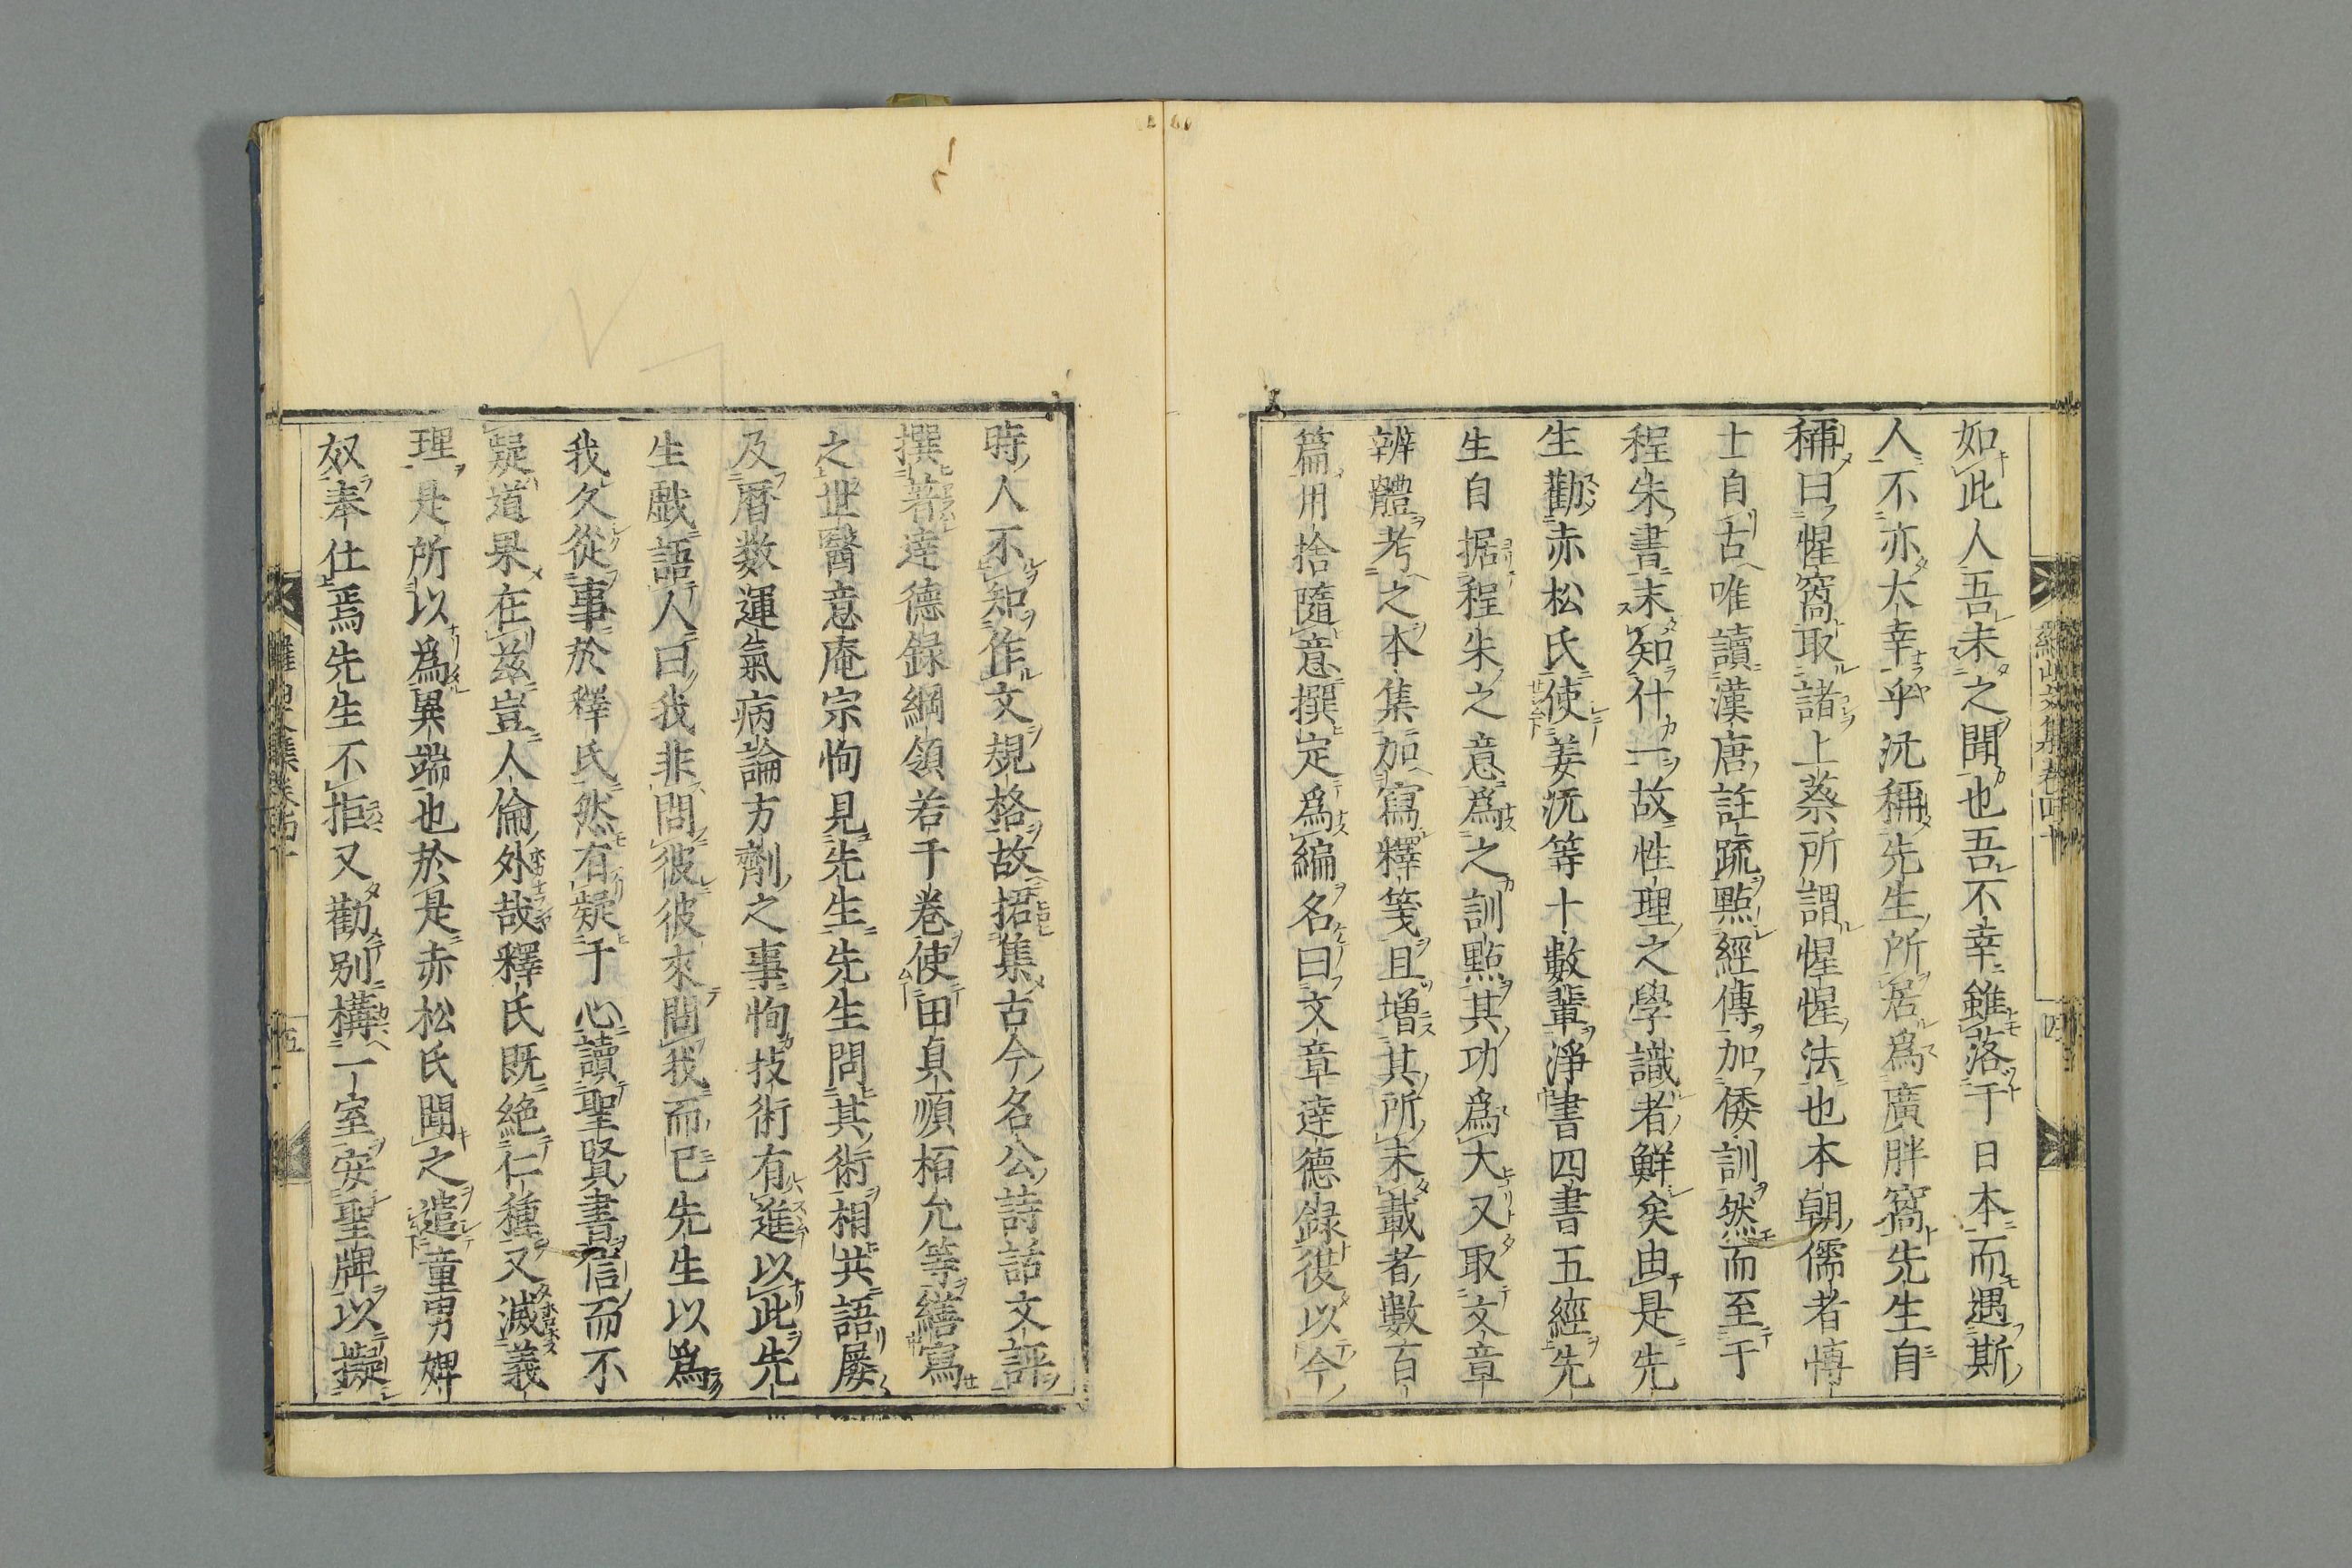 如此人吾未之聞也吾不幸雖落于日本而遇斯
人不亦大幸乎沆稱先生所居爲廣胖窩先生自
稱曰惺窩取諸上蔡所謂惺惺法也本朝儒者博
士自古唯讀漢唐註疏點經傳加倭訓然而至于
程朱書末知什一故性理之學識者鮮矣由是先
生勸赤松氏使姜沆等十數輩淨書四書五經先
生自据程朱之意爲之訓點其功爲大又取文章
辨體考之本集加寫釋箋且增其所未載者數百
篇用捨隨意撰定爲編名曰文章達德録後以今
時人不知作文規格故拓集古今名公詩話文評
撰著達德録綱領若干卷使田貞順栢允等繕寫
之世醫意庵宗恂見先生先生問其術相共語屡
及暦数運氣病論方劑之事恂技術有進以此先
生戲語人曰我非問彼彼來問我而已先生以爲
我久從事於釋氏然有疑于心讀聖賢書信而不
疑道果在茲豈人倫外哉釋氏既絶仁種又滅義
理是所以爲異端也於是赤松氏聞之遣童男婢
奴奉仕焉先生不拒又勸別構一室安聖牌以擬